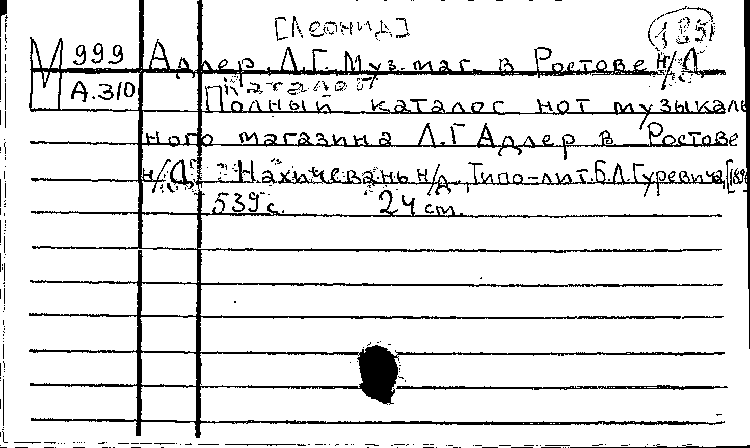 [Леонид]
185
М 999 Адлер, Л.Г. Муз. маг. в Ростове н/Д
А.310 Каталог
Полный каталог нот музыкаль
ного магазина Л.Г Адлер в Ростове
н/Д. Нахичевань н/Д, Типо-лит. Б.Л. Гуревича,
539 с. 24 cm.